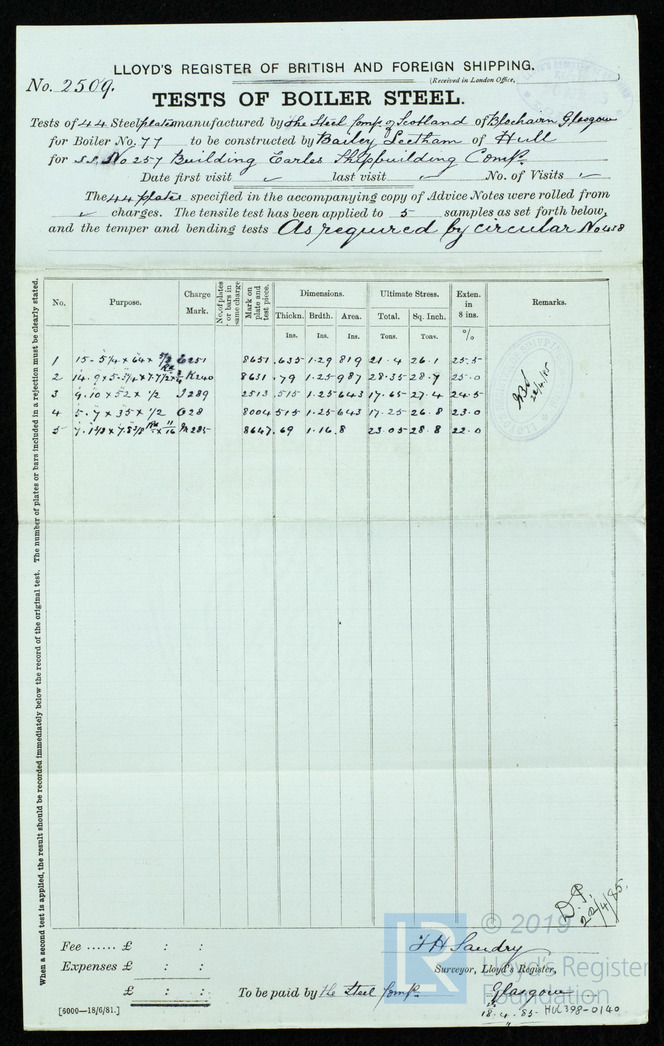 LLOYD'S REGISTER OF BRITISH AND FOREIGN SHIPPING.
No. 2509.
(Received in London Office,
TESTS OF BOILER STEEL.
Tests of 44 Steel plates manufactured by The Steel Comp. of Scotland of Blochairn Glasgow
for Boiler No. 77 to be constructed by Bailey Leetham of Hull
for S.S. No 257 Building Earles Shipbuilding Comp.
Date first visit last visit No. of Visits
The 44 plates specified in the accompanying copy of Advice Notes were rolled from
charges. The tensile test has been applied to 5 samples as set forth below,
and the temper and bending tests As required by circular No 458
When a second test is applied, the result should be recorded immediately below the record of the original test. The number of plates or bars included in a rejection must be clearly stated.
No. Purpose. Charge Mark. No. of plates or bars in same charge Mark on plate and test piece. Dimensions. Ultimate Stress. Exten. in 8 ins. Remarks.
Thickn. Brdth. Area. Total. Sq. Inch.
Ins. Ins. Ins. Tons. Tons. %
1 15 - 5 1/4 x 64 x C251 8651 .635 1.29 819 21.4 26.1 25.5
2 K240 8631 .79 1.25 987 28.35 28.7 25.0
3 9.10 x 52 x 1/2 J289 2513 .515 1.25 643 17.65 27.4 24.5
4 5.7 x 35 x 1/2 O28 8004 515 1.25 643 17.25 26.8 23.0
5 M285 8647 .69 1.16 .8 23.05 28.8 22.0
22/4/85
D.P.
22/4/85.
Fee ...... £ : :
Expenses £ : :
£ : :
[6000—18/6/81.]
To be paid by the Steel Comp.
J H Sandry
Surveyor, Lloyd's Register,
Glasgow
18.4.85. HUL398-0140
LR
© 2019
Lloyd's Register
Foundation